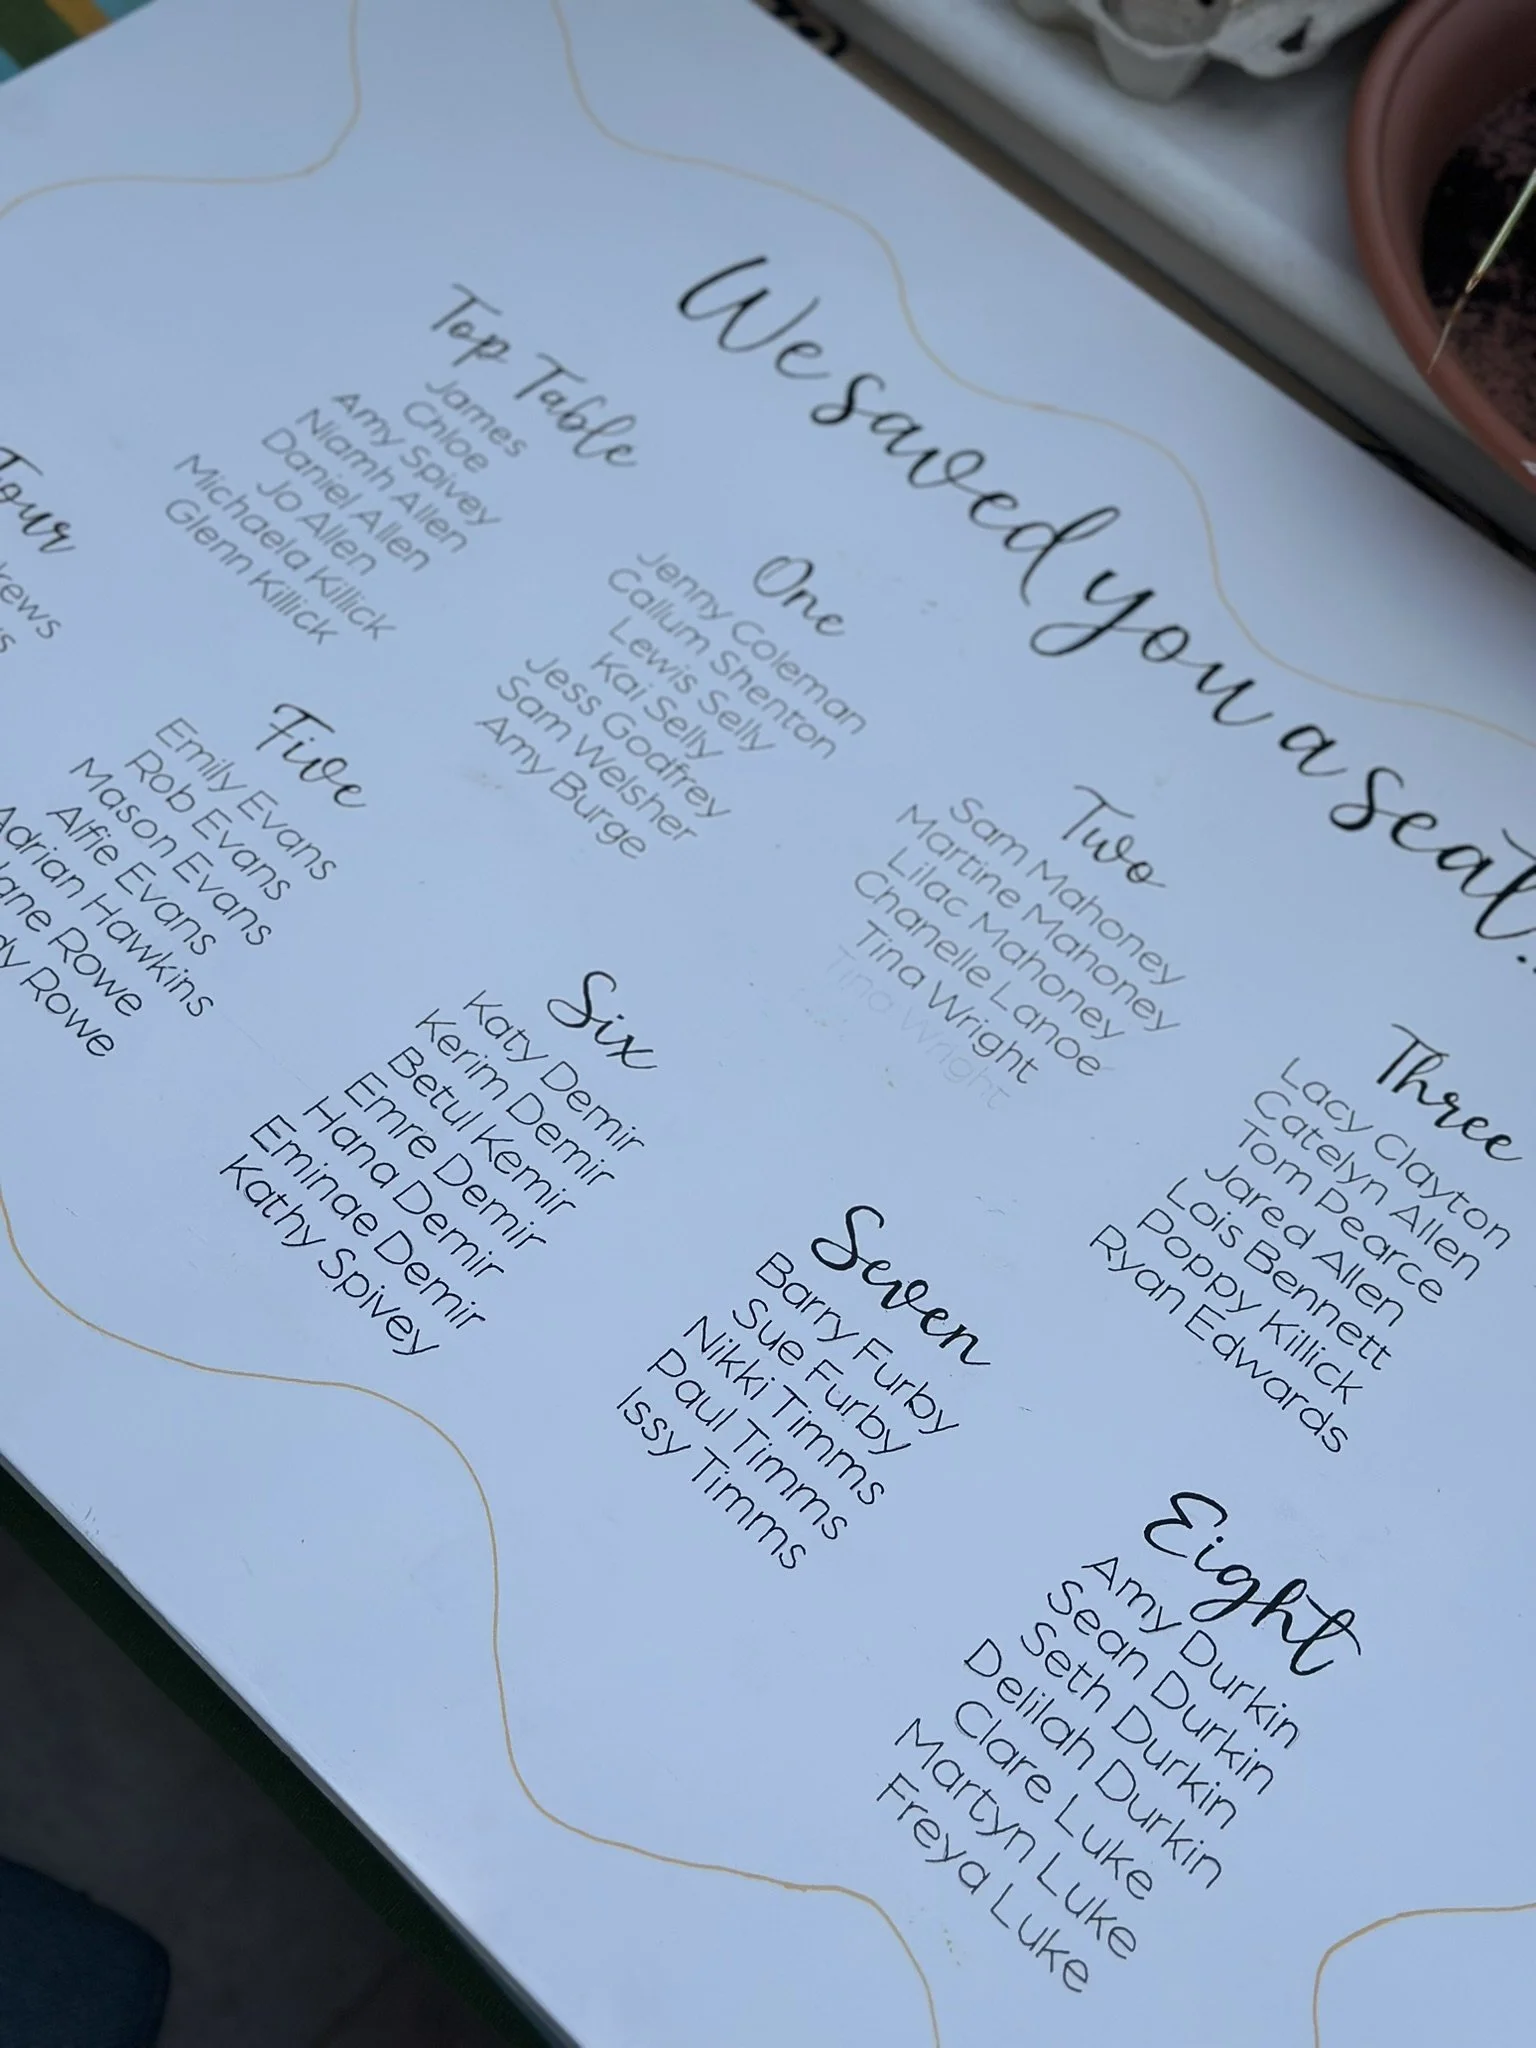 We saved you a seat...
Top Table
James
Chloe
Amy Spivey
Niamh Allen
Daniel Allen
Jo Allen
Michaela Killick
Glenn Killick
One
Jenny Coleman
Callum Shenton
Lewis Selly
Kai Selly
Jess Godfrey
Sam Welsher
Amy Burge
Two
Sam Mahoney
Martine Mahoney
Lilac Mahoney
Chanelle Lanoe
Tina Wright
Tina Wright
Three
Lacy Clayton
Catelyn Allen
Tom Pearce
Jared Allen
Lois Bennett
Poppy Killick
Ryan Edwards
Four
Five
Emily Evans
Rob Evans
Mason Evans
Alfie Evans
Adrian Hawkins
Rowe
Rowe
Six
Katy Demir
Kerim Demir
Betul Kemir
Emre Demir
Hana Demir
Eminae Demir
Kathy Spivey
Seven
Barry Furby
Sue Furby
Nikki Timms
Paul Timms
Issy Timms
Eight
Amy Durkin
Sean Durkin
Seth Durkin
Delilah Durkin
Clare Luke
Martyn Luke
Freya Luke